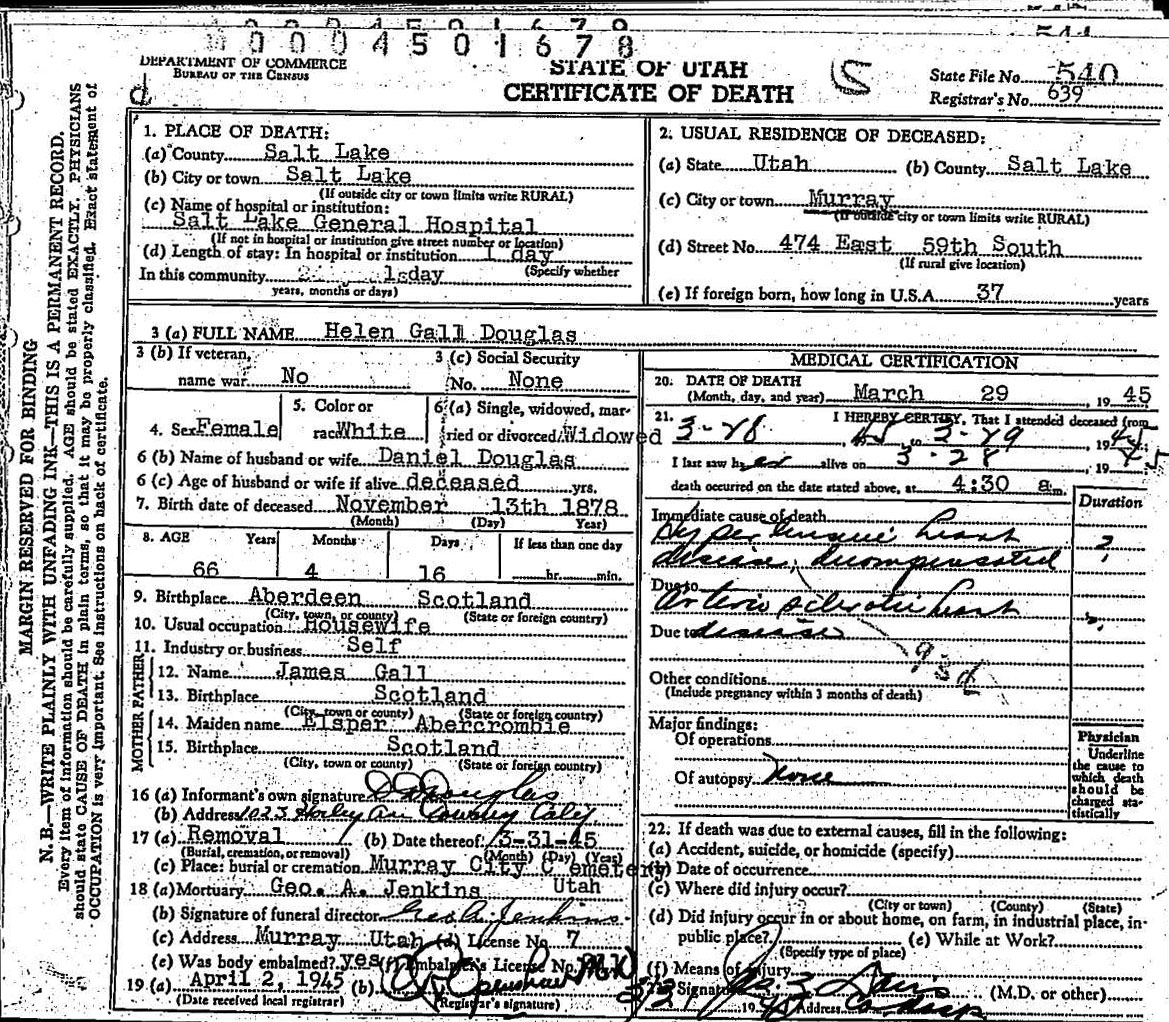 0004501678
DEPARTMENT OF COMMERCE
BUREAU OF THE CENSUS
STATE OF UTAH
CERTIFICATE OF DEATH
State File No. 540
Registrar's No. 639
MARGIN RESERVED FOR BINDING
N. B.—WRITE PLAINLY WITH UNFADING INK—THIS IS A PERMANENT RECORD.
Every item of information should be carefully supplied. AGE should be stated EXACTLY. PHYSICIANS
should state CAUSE OF DEATH in plain terms, so that it may be properly classified. Exact statement of
OCCUPATION is very important. See instructions on back of certificate.
1. PLACE OF DEATH:
(a) County Salt Lake
(b) City or town Salt Lake
(If outside city or town limits write RURAL)
(c) Name of hospital or institution:
Salt Lake General Hospital
(If not in hospital or institution give street number or location)
(d) Length of stay: In hospital or institution 1 day
(Specify whether
In this community day
years, months or days)
2. USUAL RESIDENCE OF DECEASED:
(a) State Utah (b) County Salt Lake
(c) City or town Murray
(If outside city or town limits write RURAL)
(d) Street No. 474 East 59th South
(If rural give location)
(e) If foreign born, how long in U.S.A. 37 years
3 (a) FULL NAME Helen Gall Douglas
3 (b) If veteran,
name war No
3 (c) Social Security
No. None
4. Sex Female
5. Color or
race White
6 (a) Single, widowed, mar-
ried or divorced Widowed
6 (b) Name of husband or wife Daniel Douglas
6 (c) Age of husband or wife if alive deceased yrs.
7. Birth date of deceased November 13th 1878
(Month) (Day) Year)
8. AGE Years Months Days If less than one day
66 4 16 hr. min.
9. Birthplace Aberdeen Scotland
(City, town, or county) (State or foreign country)
10. Usual occupation Housewife
11. Industry or business Self
FATHER
12. Name James Gall
13. Birthplace Scotland
(City, town or county) (State or foreign country)
MOTHER
14. Maiden name Elsper Abercrombie
15. Birthplace Scotland
(City, town or county) (State or foreign country)
16 (a) Informant's own signature Douglas
(b) Address 1023 Calif
17 (a) Removal (b) Date thereof 3-31-45
(Burial, cremation, or removal) (Month) (Day) (Year)
(c) Place: burial or cremation Murray City Cemetery
Utah
18 (a) Mortuary Geo. A. Jenkins
(b) Signature of funeral director Geo A. Jenkins
(c) Address Murray Utah (d) License No. 7
(e) Was body embalmed? yes (f) Embalmer's License No.
19 (a) April 2, 1945 (b)
(Date received local registrar) (Registrar's signature)
MEDICAL CERTIFICATION
20. DATE OF DEATH
(Month, day, and year) March 29, 1945
21. I HEREBY CERTIFY, That I attended deceased from
3-28, 45 to 3-29, 1945
I last saw her alive on 3-28, 1945
death occurred on the date stated above, at 4:30 am.
Duration
Immediate cause of death
Hypertensive heart ?
disease, decompensated
Due to
Arterio sclerotic heart
Due to disease
93d
Other conditions
(Include pregnancy within 3 months of death)
Major findings:
Of operations
Of autopsy None
Physician
Underline
the cause to
which death
should be
charged sta-
tistically
22. If death was due to external causes, fill in the following:
(a) Accident, suicide, or homicide (specify)
(b) Date of occurrence
(c) Where did injury occur?
(City or town) (County) (State)
(d) Did injury occur in or about home, on farm, in industrial place, in
public place? (e) While at Work?
(Specify type of place)
(f) Means of injury
Signature Davis (M.D. or other)
19 45 Address